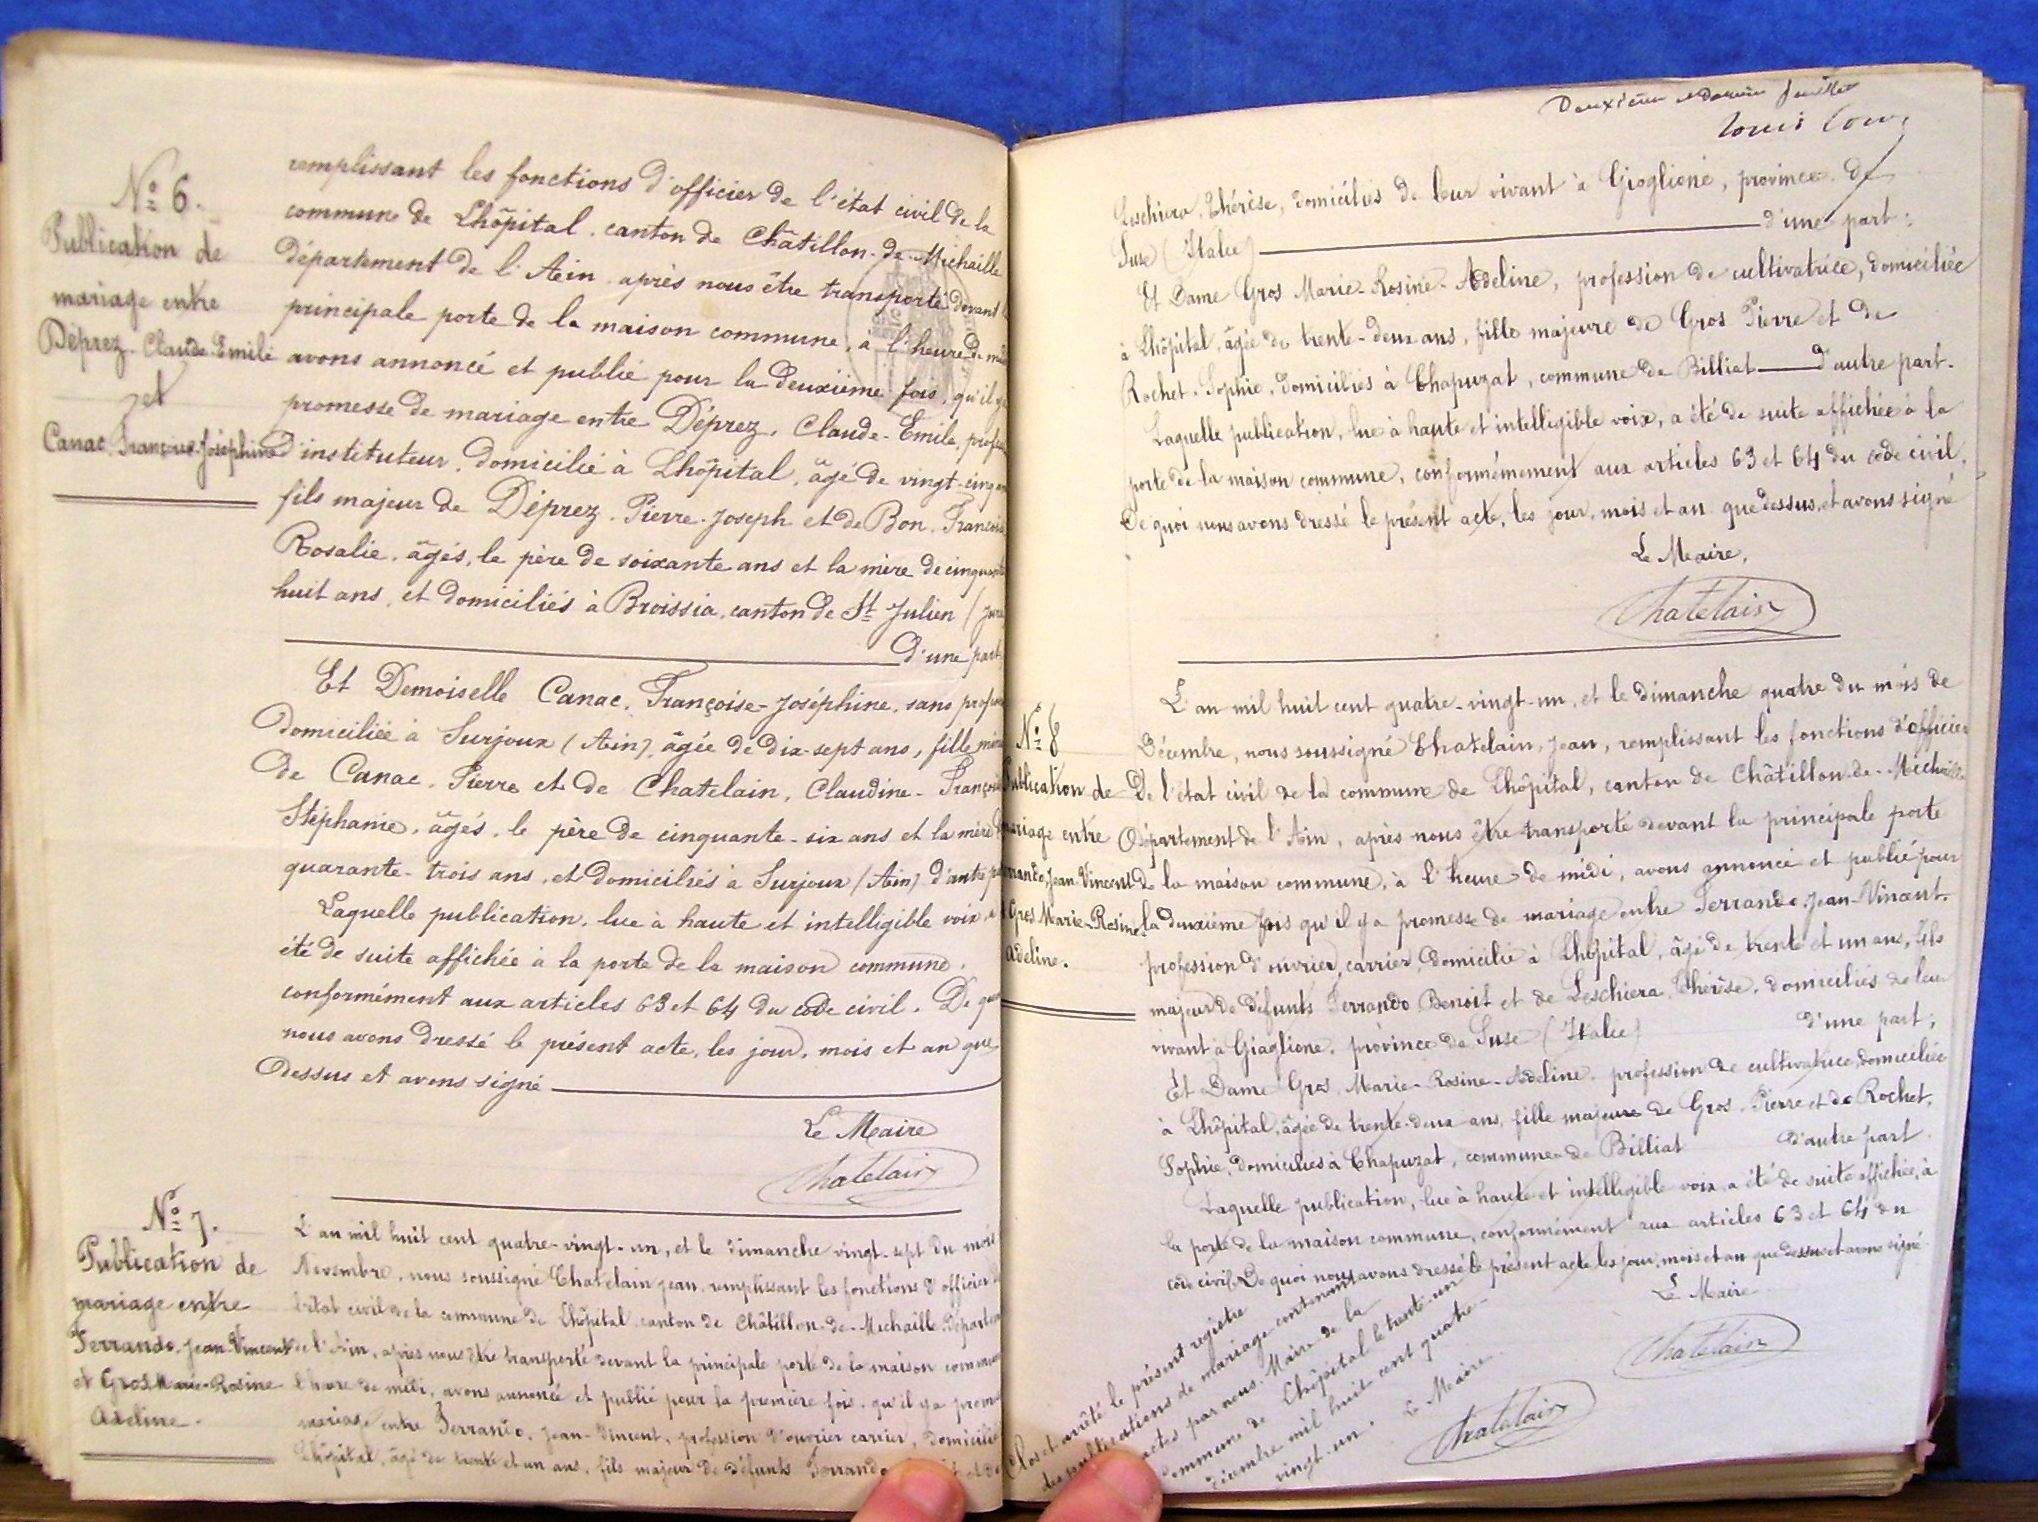 N° 6.
Publication de
mariage entre
Déprez. Claude-Emile
et
Canac, Françoise-Joséphine
remplissant les fonctions d'officier de l'état civil de la
commune de Lhôpital, canton de Châtillon-de-Michaille
département de l'Ain, après nous être transporté devant
principale porte de la maison commune, à l'heure de
avons annoncé et publié pour la deuxième fois, qu'il y
promesse de mariage entre Déprez, Claude-Emile,
d'instituteur, domicilié à Lhôpital, âgé de vingt-cinq
fils majeur de Déprez, Pierre-Joseph et de Bon,
Rosalie, âgés, le père de soixante ans et la mère de
huit ans, et domiciliés à Broissia, canton de St Julien
d'une part
Et Demoiselle Canac, Françoise-Joséphine, sans
domiciliée à Surjoux (Ain), âgée de dix-sept ans, fille
de Canac, Pierre et de Chatelain, Claudine-
Stéphanie, âgés, le père de cinquante-six ans et la mère
quarante-trois ans, et domiciliés à Surjoux (Ain)
Laquelle publication, lue à haute et intelligible voix, a
été de suite affichée à la porte de la maison commune,
conformément aux articles 63 et 64 du code civil. De
nous avons dressé le présent acte, les jour, mois et an que
dessus et avons signé
Le Maire
Chatelain
N° 7.
Publication de
mariage entre
Ferrando, Jean-Vincent
et Gros Marie-Rosine
Adeline.
L'an mil huit cent quatre-vingt-un, et le dimanche vingt-sept du mois
Novembre, nous soussigné Chatelain Jean, remplissant les fonctions d'officier
l'état civil de la commune de Lhôpital, canton de Châtillon-de-Michaille,
de l'Ain, après nous être transporté devant la principale porte de la maison
l'heure de midi, avons annoncé et publié pour la première fois, qu'il y a
mariage entre Ferrando, Jean-Vincent, profession d'ouvrier carrier,
Lhôpital, âgé de trente et un ans, fils majeur de défunts
Deuxième et dernier feuillet
Louis
Leschiera, Thérèse, domiciliés de leur vivant à Gioglione, province de
Suse (Italie) d'une part;
Et Dame Gros Marie-Rosine-Adeline, profession de cultivatrice, domiciliée
à Lhôpital, âgée de trente-deux ans, fille majeure de Gros Pierre et de
Rochet, Sophie, domiciliés à Chapuzat, commune de Billiat d'autre part.
Laquelle publication, lue à haute et intelligible voix, a été de suite affichée à la
porte de la maison commune, conformémement aux articles 63 et 64 du code civil.
De quoi nous avons dressé le présent acte, les jour, mois et an que dessus, et avons signé
Le Maire,
Chatelain
N° 8
Publication de
mariage entre
Jean-Vincent
Gros Marie-Rosine
Adeline.
L'an mil huit cent quatre-vingt-un, et le dimanche quatre du mois de
Décembre, nous soussigné Chatelain, Jean, remplissant les fonctions d'officier
de l'état civil de la commune de Lhôpital, canton de Châtillon-de-Michaille
Département de l'Ain, après nous être transporté devant la principale porte
de la maison commune, à l'heure de midi, avons annoncé et publié pour
la deuxième fois qu'il y a promesse de mariage entre Ferrando, Jean-Vincent,
profession d'ouvrier carrier, domicilié à Lhôpital, âgé de trente et un ans, fils
majeur de défunts Ferrando Benoit et de Leschiera, Thérèse, domiciliés de leur
vivant à Giaglione, province de Suse (Italie) d'une part;
Et Dame Gros, Marie-Rosine-Adeline, profession de cultivatrice, domiciliée
à Lhôpital, âgée de trente-deux ans, fille majeure de Gros, Pierre et de Rochet,
Sophie, domiciliés à Chapuzat, commune de Billiat d'autre part.
Laquelle publication, lue à haute et intelligible voix, a été de suite affichée, à
la porte de la maison commune, conformément aux articles 63 et 64 du
code civil. De quoi nous avons dressé le présent acte, les jour, mois et an que dessus et avons signé
Le Maire
Chatelain
Clos et arrêté le présent registre
des publications de mariage contenant
actes par nous, Maire de la
commune de Lhôpital le trente-un
Décembre mil huit cent quatre-
vingt-un. Le Maire.
Chatelain